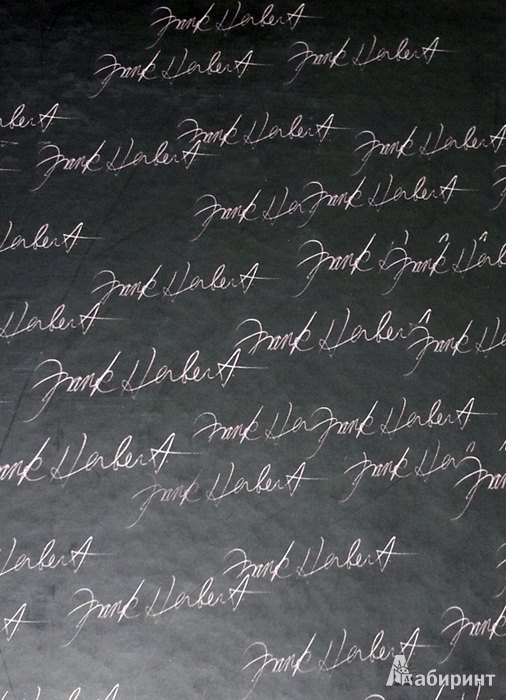 Frank Herbert
Frank Herbert Frank Herbert
Herbert Frank Herbert Frank Herbert
Frank Herbert
Frank Her Frank Herbert
Herbert Frank H Frank Herb
Frank Herbert
Herbert Frank Herbert Frank H
Frank Herbert
Frank Her Frank Herbert
Frank Herbert Frank Her Frank
Frank Herbert
Herbert Frank Herbert
Frank Herbert Frank
Frank Herbert
Лабиринт